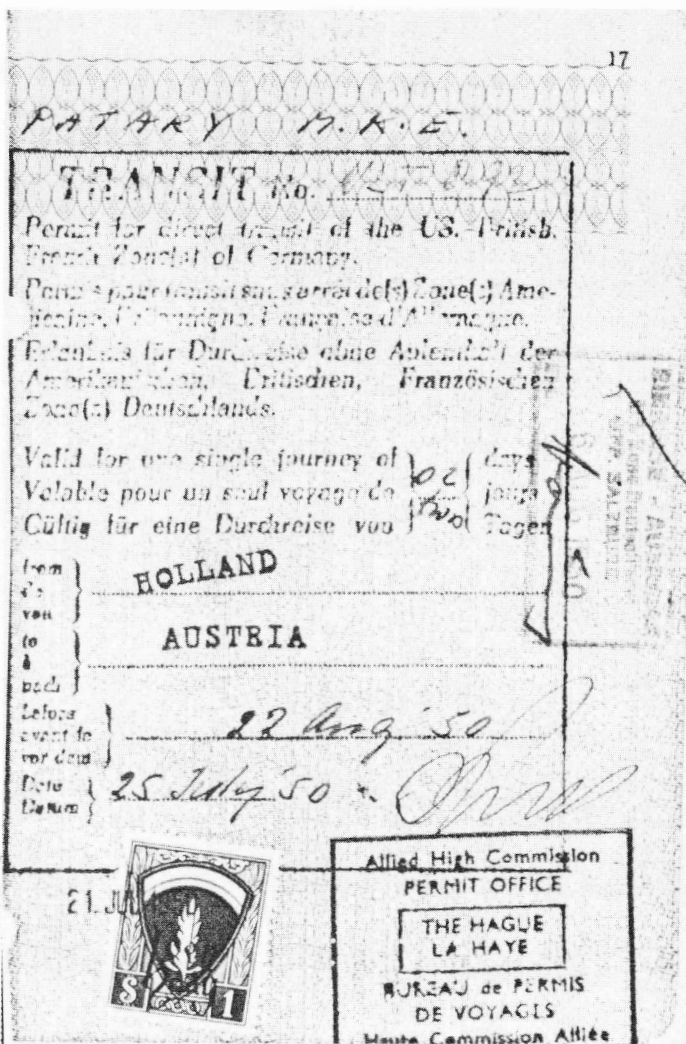 17
PATARY M.K.E.
TRANSIT No.
Permit for direct transit of the US. British.
French Zone(s) of Germany.
Permis pour transit sans arrêt de(s) Zone(s) Amé-
ricaine, Britannique, Française d'Allemagne.
Erlaubnis für Durchreise ohne Aufenthalt der
Amerikanischen, Britischen, Französischen
Zone(n) Deutschlands.
Valid for one single journey of days
Valable pour un seul voyage de 02 jours
Gültig für eine Durchreise von TWO Tagen
from
de
von
HOLLAND
to
à
nach
AUSTRIA
before
avant le
vor dem
22 Aug '50
Date
Datum
25 July '50
21 JU
$ 1
Allied High Commission
PERMIT OFFICE
THE HAGUE
LA HAYE
BUREAU de PERMIS
DE VOYAGES
Haute Commission Alliée